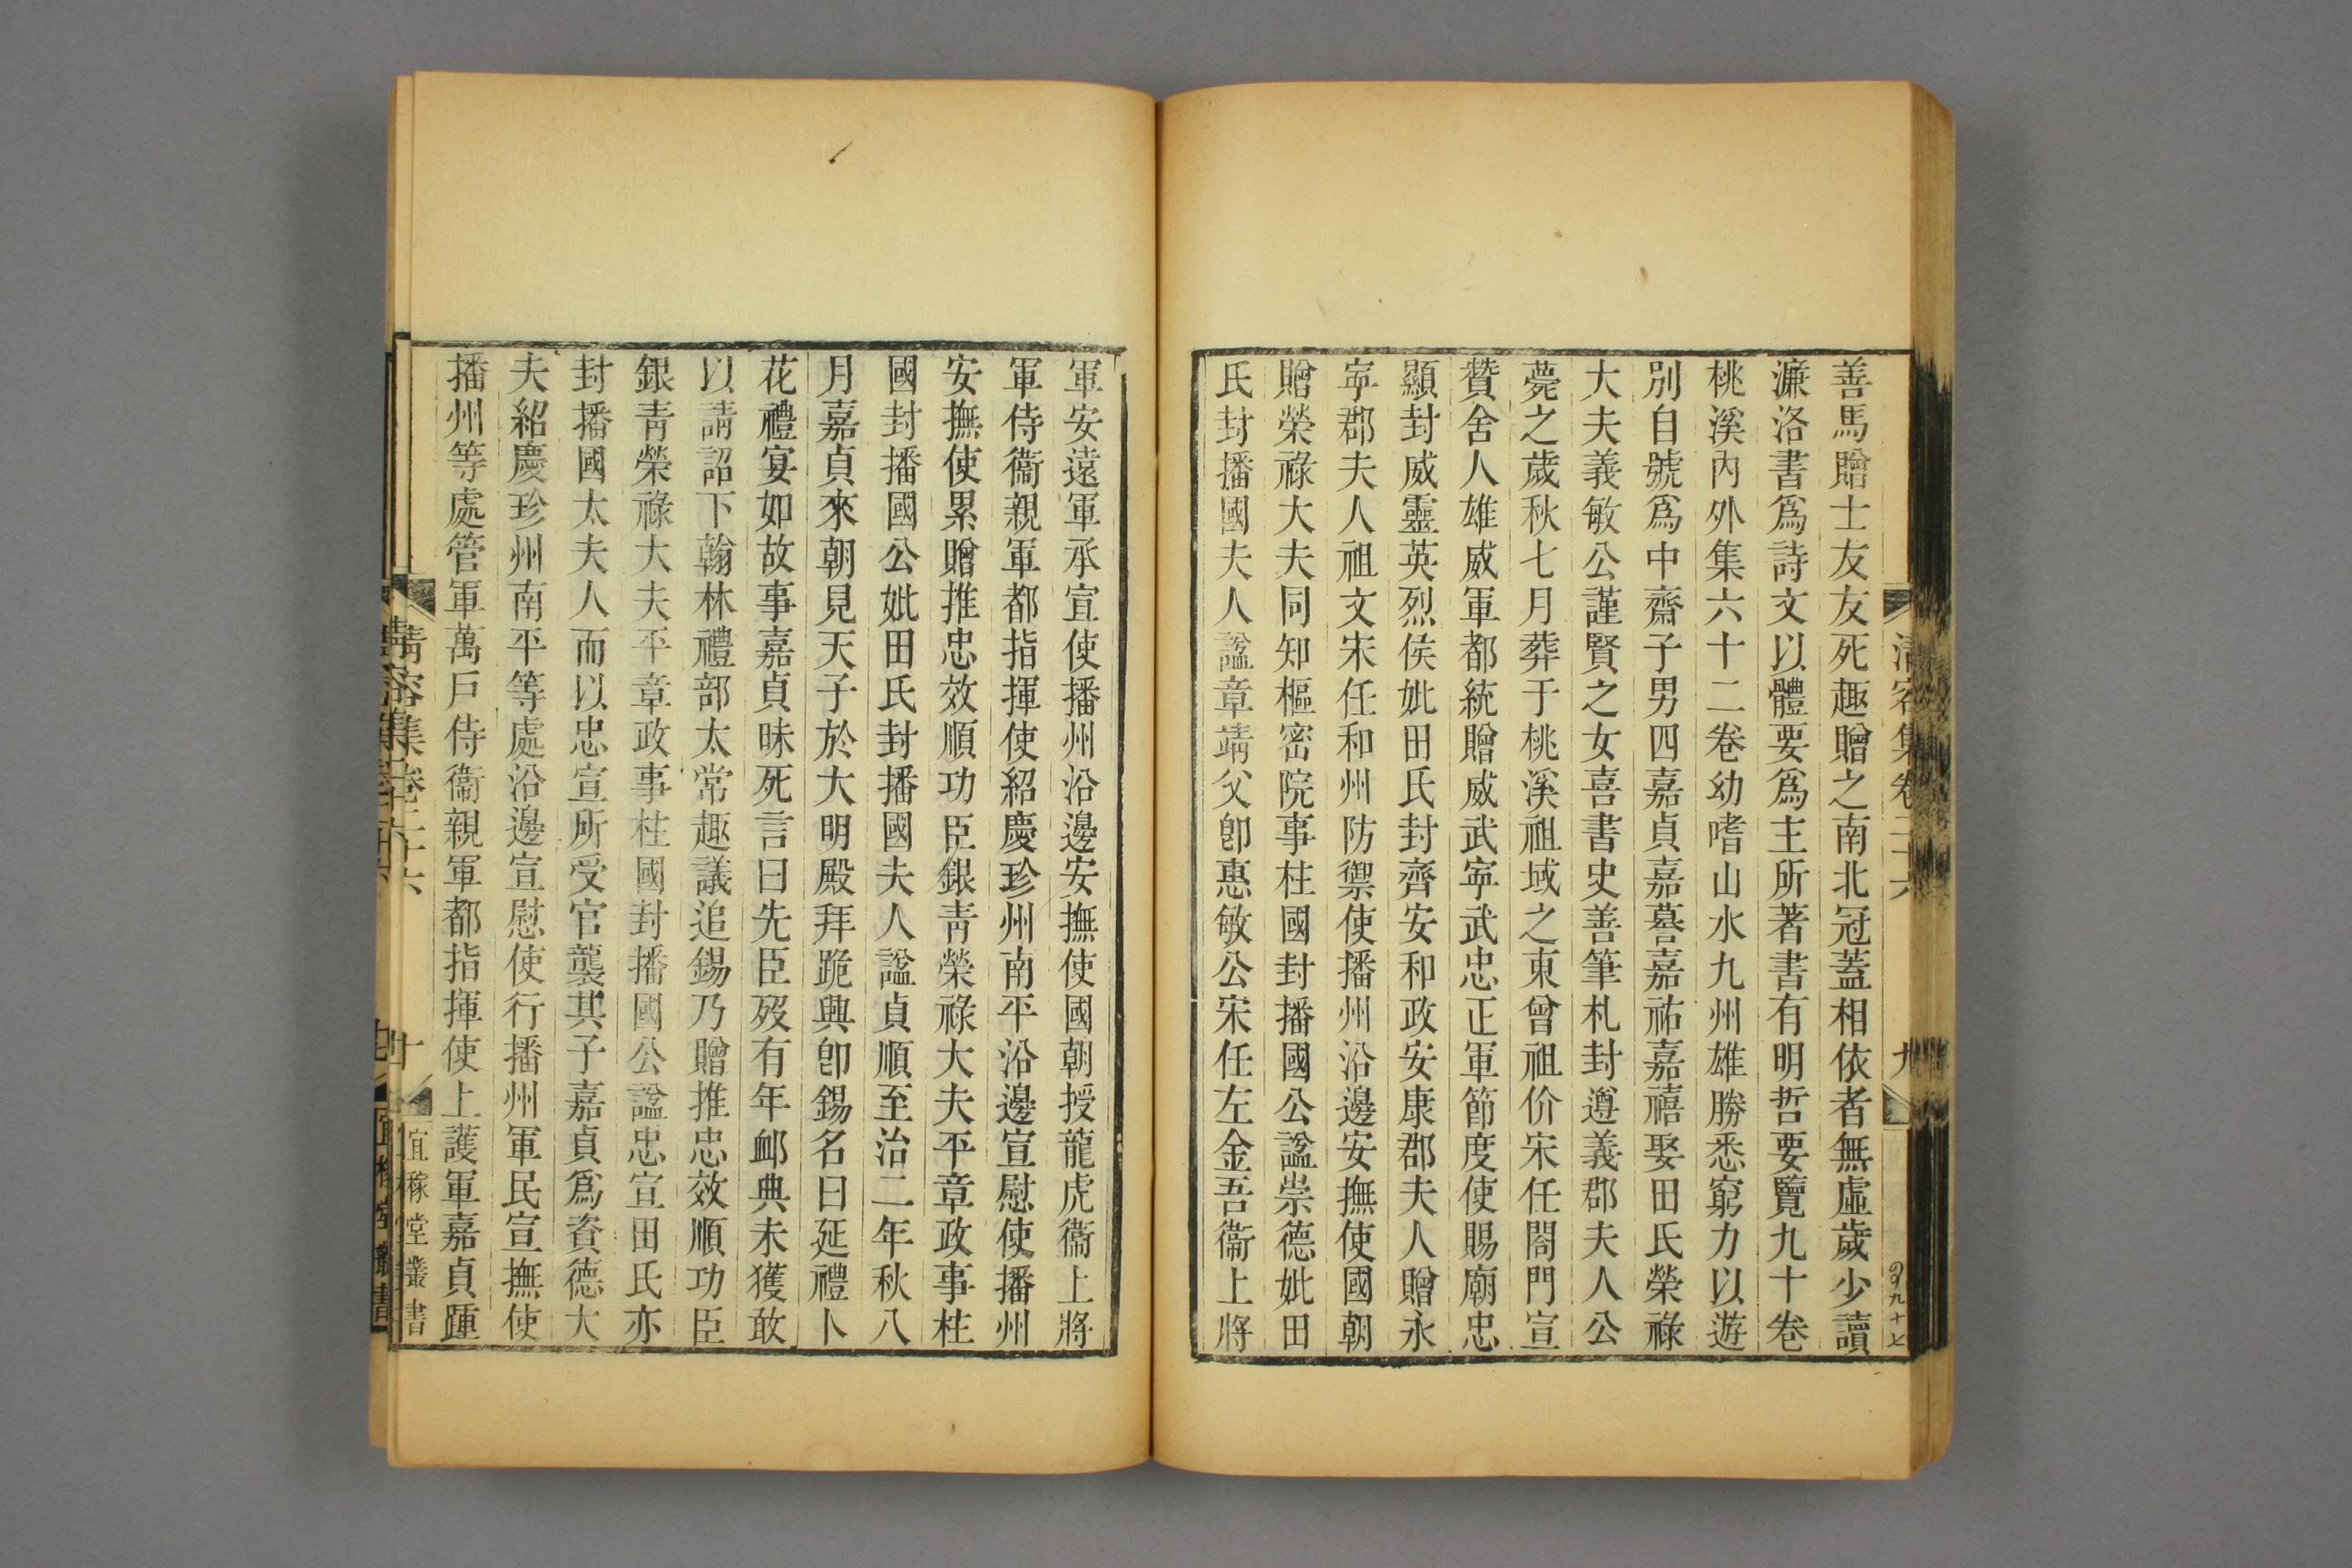 善馬贈士友友死趣贈之南北冠蓋相依者無虛歲少讀
濂洛書爲詩文以體要爲主所著書有明哲要覽九十卷
桃溪內外集六十二卷幼嗜山水九州雄勝悉窮力以遊
別自號爲中齋子男四嘉貞嘉謩嘉祐嘉禧娶田氏榮祿
大夫義敏公謹賢之女喜書史善筆札封遵義郡夫人公
薨之歲秋七月葬于桃溪祖域之東曾祖价宋任閤門宣
贊舍人雄威軍都統贈威武寧武忠正軍節度使賜廟忠
顯封威靈英烈侯妣田氏封齊安和政安康郡夫人贈永
寧郡夫人祖文宋任和州防禦使播州沿邊安撫使國朝
贈榮祿大夫同知樞密院事柱國封播國公諡崇德妣田
氏封播國夫人諡章靖父卽惠敏公宋任左金吾衞上將
軍安遠軍承宣使播州沿邊安撫使國朝授龍虎衞上將
軍侍衞親軍都指揮使紹慶珍州南平沿邊宣慰使播州
安撫使累贈推忠效順功臣銀靑榮祿大夫平章政事柱
國封播國公妣田氏封播國夫人諡貞順至治二年秋八
月嘉貞來朝見天子於大明殿拜跪興卽錫名曰延禮卜
花禮宴如故事嘉貞昧死言曰先臣歿有年卹典未獲敢
以請詔下翰林禮部太常趣議追錫乃贈推忠效順功臣
銀靑榮祿大夫平章政事柱國封播國公諡忠宣田氏亦
封播國太夫人而以忠宣所受官襲其子嘉貞爲資德大
夫紹慶珍州南平等處沿邊宣慰使行播州軍民宣撫使
播州等處管軍萬戶侍衞親軍都指揮使上護軍嘉貞踵
淸容集卷二十六
十
宜稼堂叢書